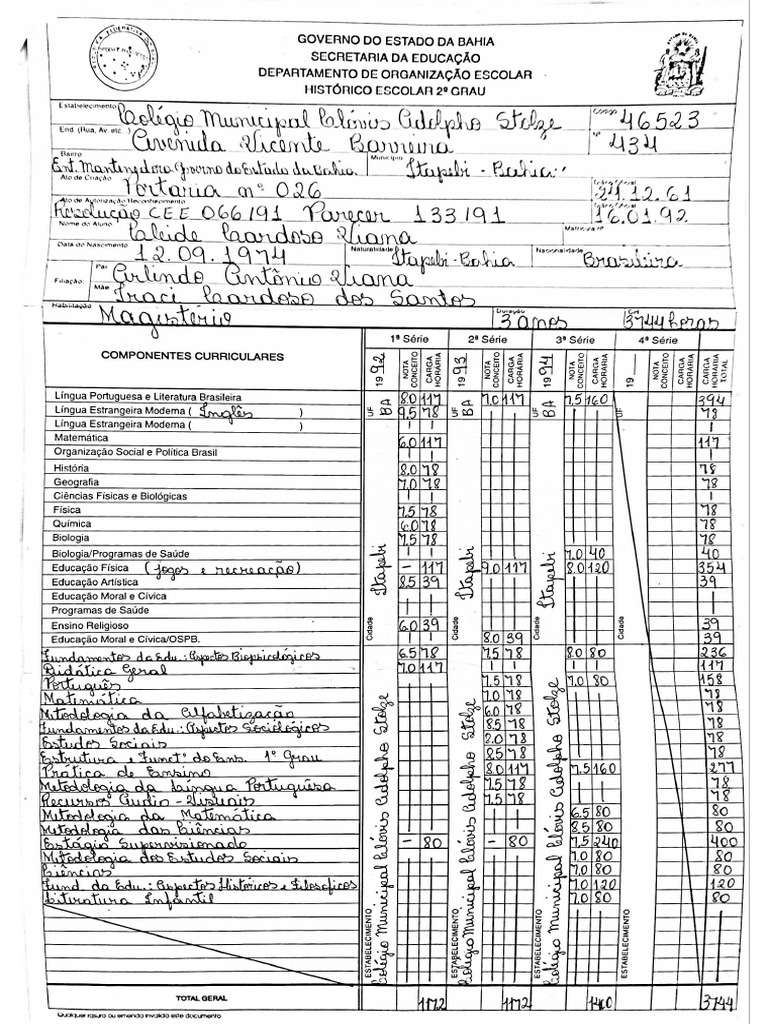 GOVERNO DO ESTADO DA BAHIA
SECRETARIA DA EDUCAÇÃO
DEPARTAMENTO DE ORGANIZAÇÃO ESCOLAR
HISTÓRICO ESCOLAR 2º GRAU
Estabelecimento Colégio Municipal Clóvis Adolpho Stolze Código 46523
End. (Rua, Av. etc.) Avenida Vicente Barreira Nº 434
Bairro Município
Ent. Mantenedora Governo do Estado da Bahia. Itapebi - Bahia
Ato de Criação Portaria nº 026 24.12.61
Ato de Autorização/Reconhecimento
Resolução CEE 066/91 Parecer 133/91 16.01.92
Nome do Aluno Cleide Cardoso Viana Matrícula nº
Data do Nascimento 12.09.1974 Naturalidade Itapebi-Bahia Nacionalidade Brasileira
Filiação: Pai Arlindo Antônio Viana
Mãe Iraci Cardoso dos Santos
Habilitação Magistério Duração 3 anos 3744 horas
COMPONENTES CURRICULARES 1ª Série 2ª Série 3ª Série 4ª Série
1992 NOTA CONCEITO CARGA HORÁRIA 1993 NOTA CONCEITO CARGA HORÁRIA 1994 NOTA CONCEITO CARGA HORÁRIA 19 NOTA CONCEITO CARGA HORÁRIA CARGA HORÁRIA TOTAL
UF BA UF BA UF BA UF
Cidade Itapebi Cidade Itapebi Cidade Itapebi Cidade
ESTABELECIMENTO Colégio Municipal Clóvis Adolpho Stolze
ESTABELECIMENTO Colégio Municipal Clóvis Adolpho Stolze
ESTABELECIMENTO Colégio Municipal Clóvis Adolpho Stolze
ESTABELECIMENTO
Língua Portuguesa e Literatura Brasileira 8.0 117 7.0 117 7.5 160 394
Língua Estrangeira Moderna ( Inglês ) 9.5 78 78
Língua Estrangeira Moderna ( )
Matemática 6.0 117 117
Organização Social e Política Brasil
História 8.0 78 78
Geografia 7.0 78 78
Ciências Físicas e Biológicas
Física 7.5 78 78
Química 6.0 78 78
Biologia 7.5 78 78
Biologia/Programas de Saúde 7.0 40 40
Educação Física (Jogos e recreação) - 117 9.0 117 8.0 120 354
Educação Artística 8.5 39 39
Educação Moral e Cívica
Programas de Saúde
Ensino Religioso 6.0 39 39
Educação Moral e Cívica/OSPB. 8.0 39 39
Fundamentos da Edu.: Aspectos Biopsicológicos 6.5 78 7.5 78 8.0 80 236
Didática Geral 7.0 117 117
Português 7.5 78 7.0 80 158
Matemática 7.0 78 78
Metodologia da Alfabetização 6.0 78 78
Fundamentos da Edu.: Aspectos Sociológicos 8.5 78 78
Estudos Sociais 78 78
Estrutura e Funct.º do Ens. 1º Grau 8.5 78 78
Prática de Ensino 8.0 117 7.5 160 277
Metodologia da Língua Portuguesa 7.5 78 78
Recursos Áudio-Visuais 7.5 78 78
Metodologia da Matemática 6.5 80 80
Metodologia das Ciências 8.5 80 80
Estágio Supervisionado - 80 - 80 7.5 240 400
Metodologia dos Estudos Sociais 7.0 80 80
Ciências 7.0 80 80
Fund. da Edu.: Aspectos Históricos e Filosóficos 7.0 120 120
Literatura Infantil 7.0 80 80
TOTAL GERAL 1172 1172 1400 3744
Qualquer rasura ou emenda invalida este documento